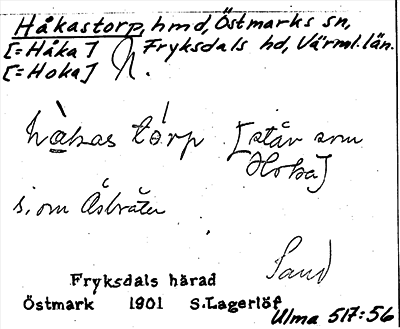 Håkastorp, hmd, Östmarks sn,
[=Håka] N. Fryksdals hd, Värml. län.
[=Hoka]
hàkas tórp [står som
Hoka]
s. om Åsbråten
Sand
Fryksdals härad
Östmark 1901 S.Lagerlöf
Ulma 517:56